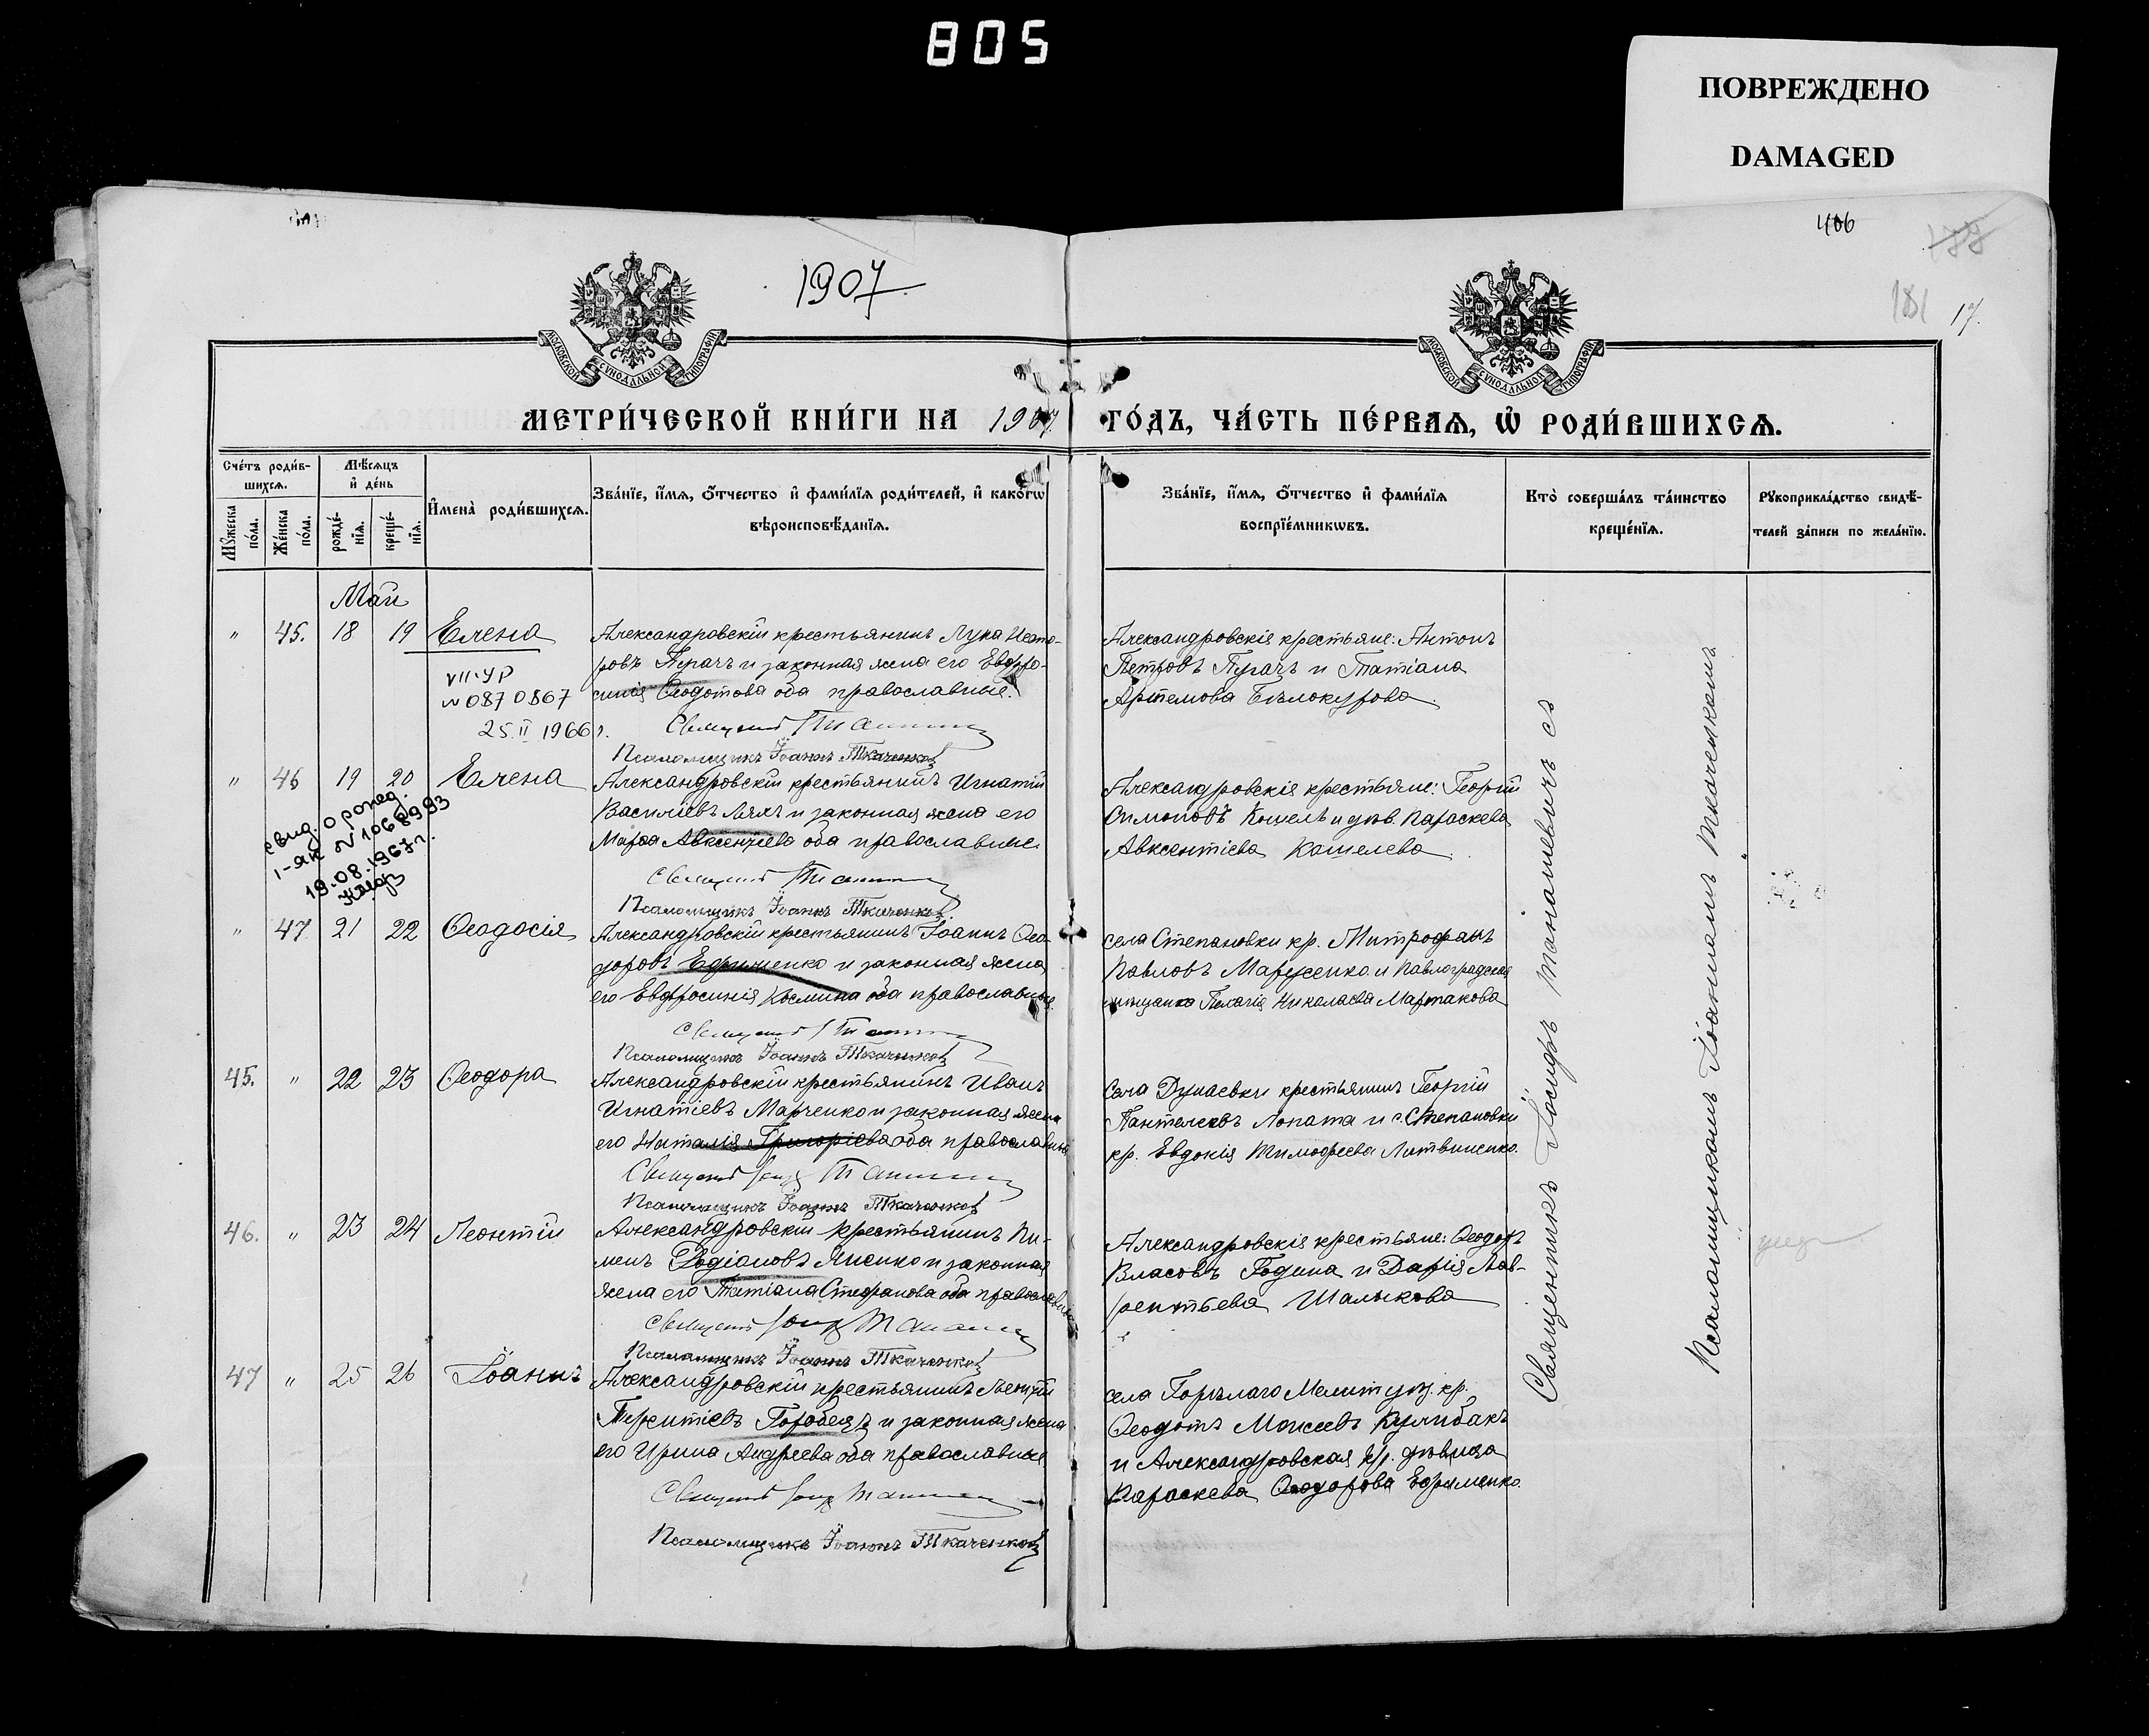 805
ПОВРЕЖДЕНО
DAMAGED
406
188
181
17.
1907.
МОСКОВСКОЙ СѴНОДАЛЬНОЙ ТИПОГРАФІИ
МОСКОВСКОЙ СѴНОДАЛЬНОЙ ТИПОГРАФІИ
МЕТРИ́ЧЕСКОЙ КНИ́ГИ НА 1907.
ГО́ДЪ, ЧА́СТЬ ПЕ́РВАѦ, Ѡ҆ РОДИ́ВШИХСѦ.
Сче́тъ роди́в-
шихсѧ.
Мꙋ́жеска по́ла.
Же́нска по́ла.
Мѣ́сѧцъ
и҆ де́нь
рожде́-
нїѧ.
креще́-
нїѧ.
И҆мена̀ роди́вшихсѧ.
Зва́нїе, и҆́мѧ, ѻ҆́тчество и҆ фами́лїѧ роди́телей, и҆ како́гѡ
вѣроисповѣ́данїѧ.
Зва́нїе, и҆́мѧ, ѻ҆́тчество и҆ фами́лїѧ
воспрїе́мникѡвъ.
Кто̀ соверша́лъ та́инство
креще́нїѧ.
Рꙋкоприкла́дство свидѣ́-
телей за́писи по жела́нїю.
Май
" 45. 18 19 Елена
Александровскій крестьянинъ Лука
ровъ Пугачъ и законная жена его Евфро-
синія Ѳеодотова оба православные.
Священникъ
Псаломщикъ Іоаннъ Ткаченковъ
Александровскія крестьяне: Антонъ
Петровъ Пугачъ и Татіана
Артемова Бѣлокурова.
VII-УР
№ 0870867
25.II 1966 г.
" 46 19 20 Елена
Александровскій крестьянинъ Игнатій
Василіевъ Ляхъ и законная жена его
Марѳа Авксентіева оба православные.
Священникъ
Псаломщикъ Іоаннъ Ткаченковъ.
Александровскія крестьяне: Георгій
Симоновъ Кошель и дѣв. Параскева
Авксентіева Кошелева.
свид. о рожд.
I-ЯК № 1068993
19.08.1967 г.
" 47 21 22 Ѳеодосія
Александровскій крестьянинъ Іоаннъ Ѳео-
доровъ Ефименко и законная жена
его Евфросинія Космина оба православные.
Священникъ
Псаломщикъ Іоаннъ Ткаченковъ
села Степановки кр. Митрофанъ
Павловъ Марусенко и Павлоградская
мѣщанка Пелагія Николаева Мартакова
45. " 22 23 Ѳеодора
Александровскій крестьянинъ Иванъ
Игнатіевъ Марченко и законная жена
его Наталія Григоріева оба православные
Священникъ
Псаломщикъ Іоаннъ Ткаченковъ
Села Дунаевки крестьянинъ Георгій
Пантелеевъ Лопата и с. Степановки
кр. Евдокія Тимофеева Литвиненко.
46. " 23 24 Леонтій
Александровскій крестьянинъ Пи-
менъ Родіоновъ Яненко и законная
жена его Татіана Стефанова оба православные
Священникъ
Псаломщикъ Іоаннъ Ткаченковъ
Александровскія крестьяне: Ѳеодоръ
Власовъ Година и Дарія Лав-
рентьева Шалыкова
47 " 25 26 Іоаннъ
Александровскій крестьянинъ
Терентіевъ Горобецъ и законная жена
его Ирина Андреева оба православные
Священникъ
Псаломщикъ Іоаннъ Ткаченковъ
села Горѣлаго Мелит. у. кр.
Ѳеодотъ Моисеевъ Кулибакъ
и Александровская кр. дѣвица
Параскева Ѳеодорова Ефименко.
Священникъ Іосифъ Танашевичъ съ
Псаломщикомъ Іоанномъ Ткаченковымъ